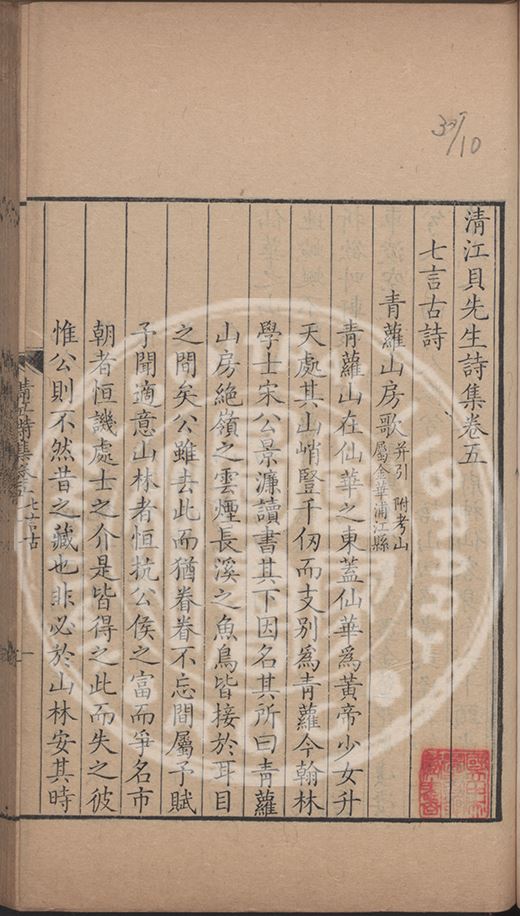 30/10
清江貝先生詩集卷五
七言古詩
青蘿山房歌 并引 附考山屬金華浦江縣
青蘿山在仙華之東蓋仙華爲黃帝少女升
天處其山峭豎千仞而支別爲青蘿今翰林
學士宋公景濂讀書其下因名其所曰青蘿
山房絶嶺之雲煙長溪之魚鳥皆接於耳目
之間矣公雖去此而猶眷眷不忘間屬予賦
予聞適意山林者恒抗公侯之富而爭名市
朝者恒譏處士之介是皆得之此而失之彼
惟公則不然昔之藏也非必於山林安其時
清江詩集卷五 七言古 一